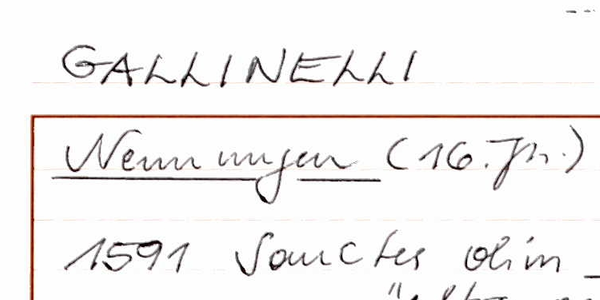 GALLINELLI
Nennungen (16. Jh.)
1591 Sanctes olim